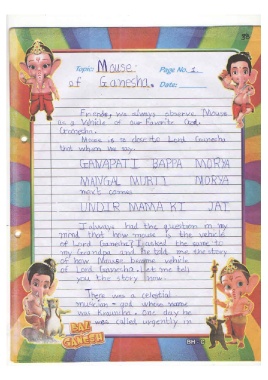 Topic: Mouse Page No. 1
of Ganesha. Date:
Friends, we always observe Mouse
as a Vehicle of our favorite God
Ganesha.
Mouse is so close to Lord Ganesha
that when we say.
GANAPATI BAPPA MORYA
MANGAL MURTI MORYA
next comes
UNDIR MAMA KI JAI
I always had the question in my
mind that how mouse is the vehicle
of Lord Ganesha? I asked the same to
my Grandpa and he told me the story
of how Mouse became vehicle
of Lord Ganesha. Let me tell
you the story now.
There was a celestial
musician-god whose name
was Krauncha. One day he
was called urgently in
BAL
GANESH